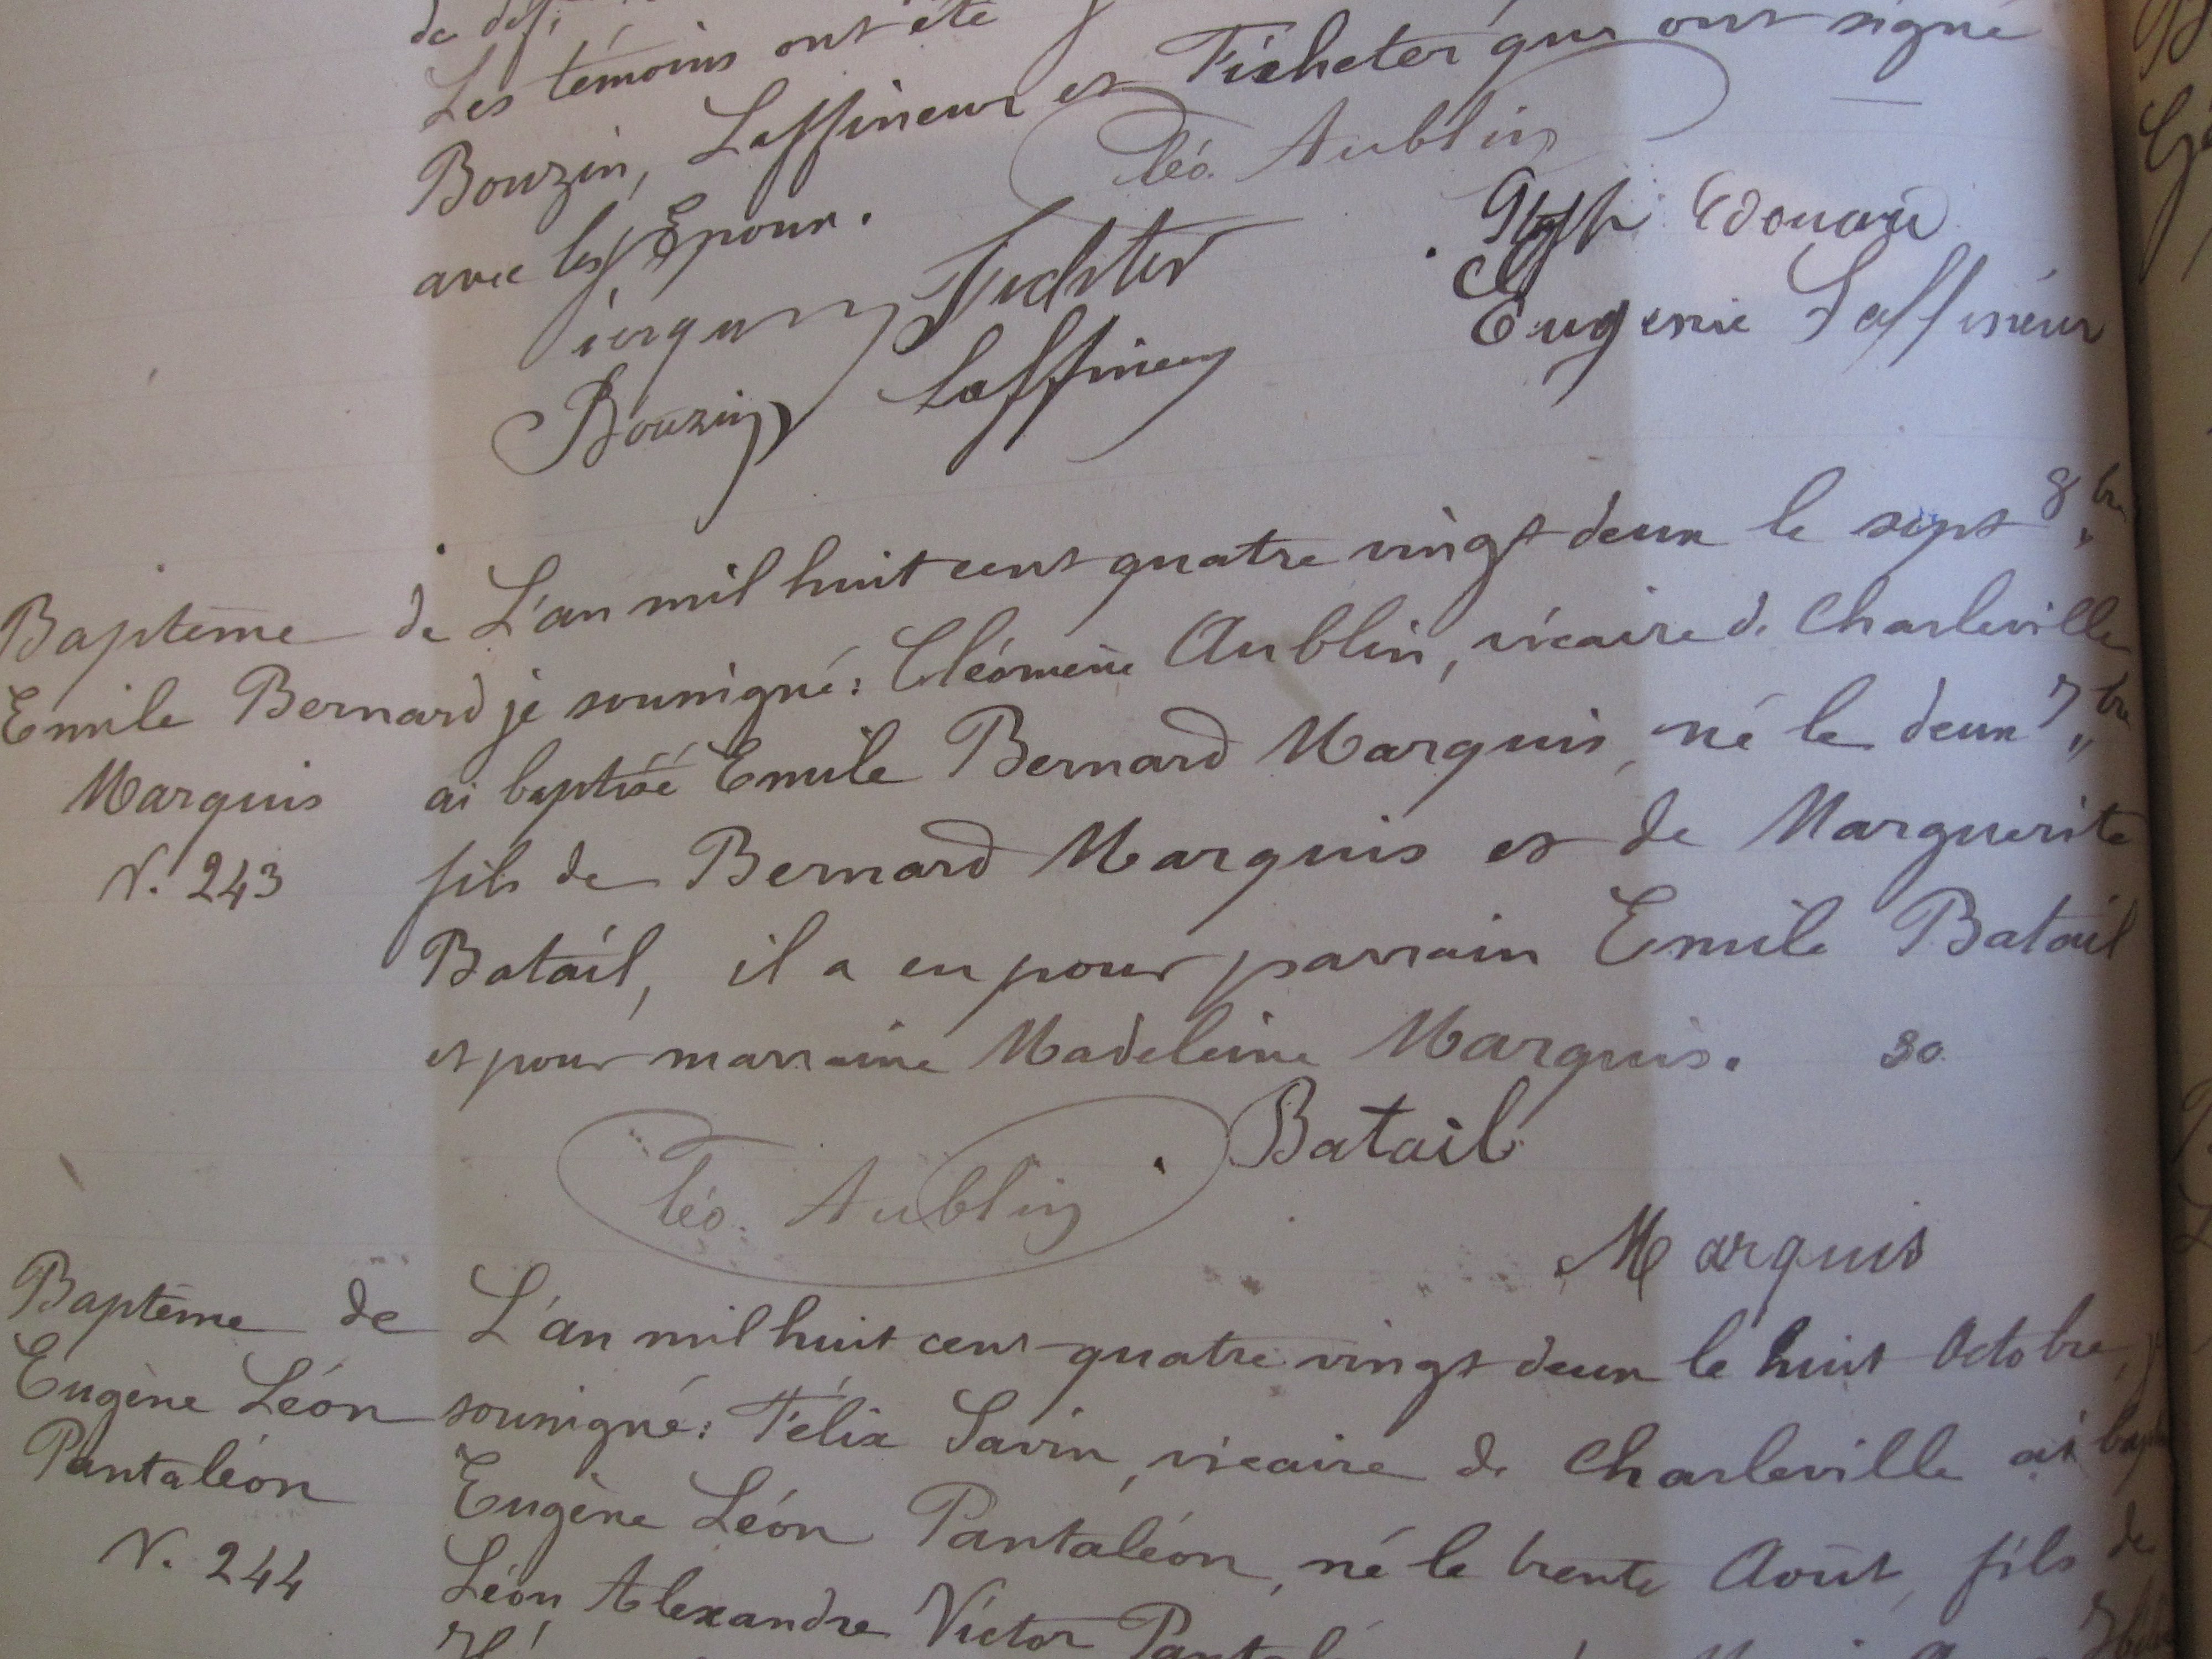 Les témoins ont été
Bouzin, Laffineur et Ficheter qui ont signé
avec les Epoux.
Cléo. Aublin
Fichter
Edouard
Bouzin
Laffineur
Eugenie Laffineur
Baptême de
Emile Bernard
Marquis
N. 243
L'an mil huit cent quatre vingt deux le sept 8bre
je soussigné: Cléomène Aublin, vicaire de Charleville
ai baptisé Emile Bernard Marquis, né le deux 7bre
fils de Bernard Marquis et de Marguerite
Batail, il a eu pour parrain Emile Batail
et pour marraine Madeleine Marquis.
Batail
Cléo. Aublin
Marquis
Baptême de
Eugène Léon
Pantaléon
N. 244
L'an mil huit cent quatre vingt deux le huit Octobre, je
soussigné: Félix Savin, vicaire de Charleville ai
Eugène Léon Pantaléon, né le trente Août, fils de
Léon Alexandre Victor